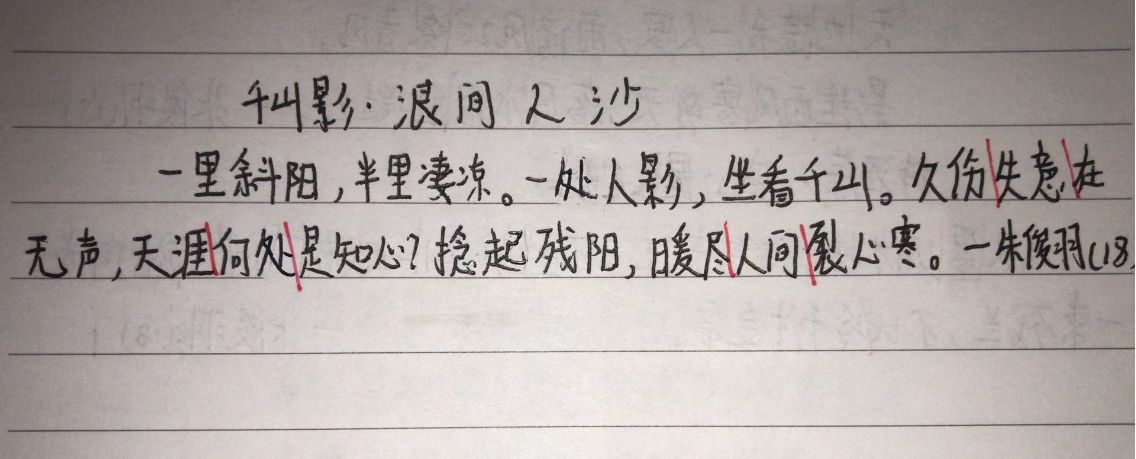 千山影·浪间人沙
一里斜阳，半里凄凉。一处人影，坐看千山。久伤失意在
无声，天涯何处是知心？捻起残阳，暖尽人间裂心寒。—朱俊羽(18